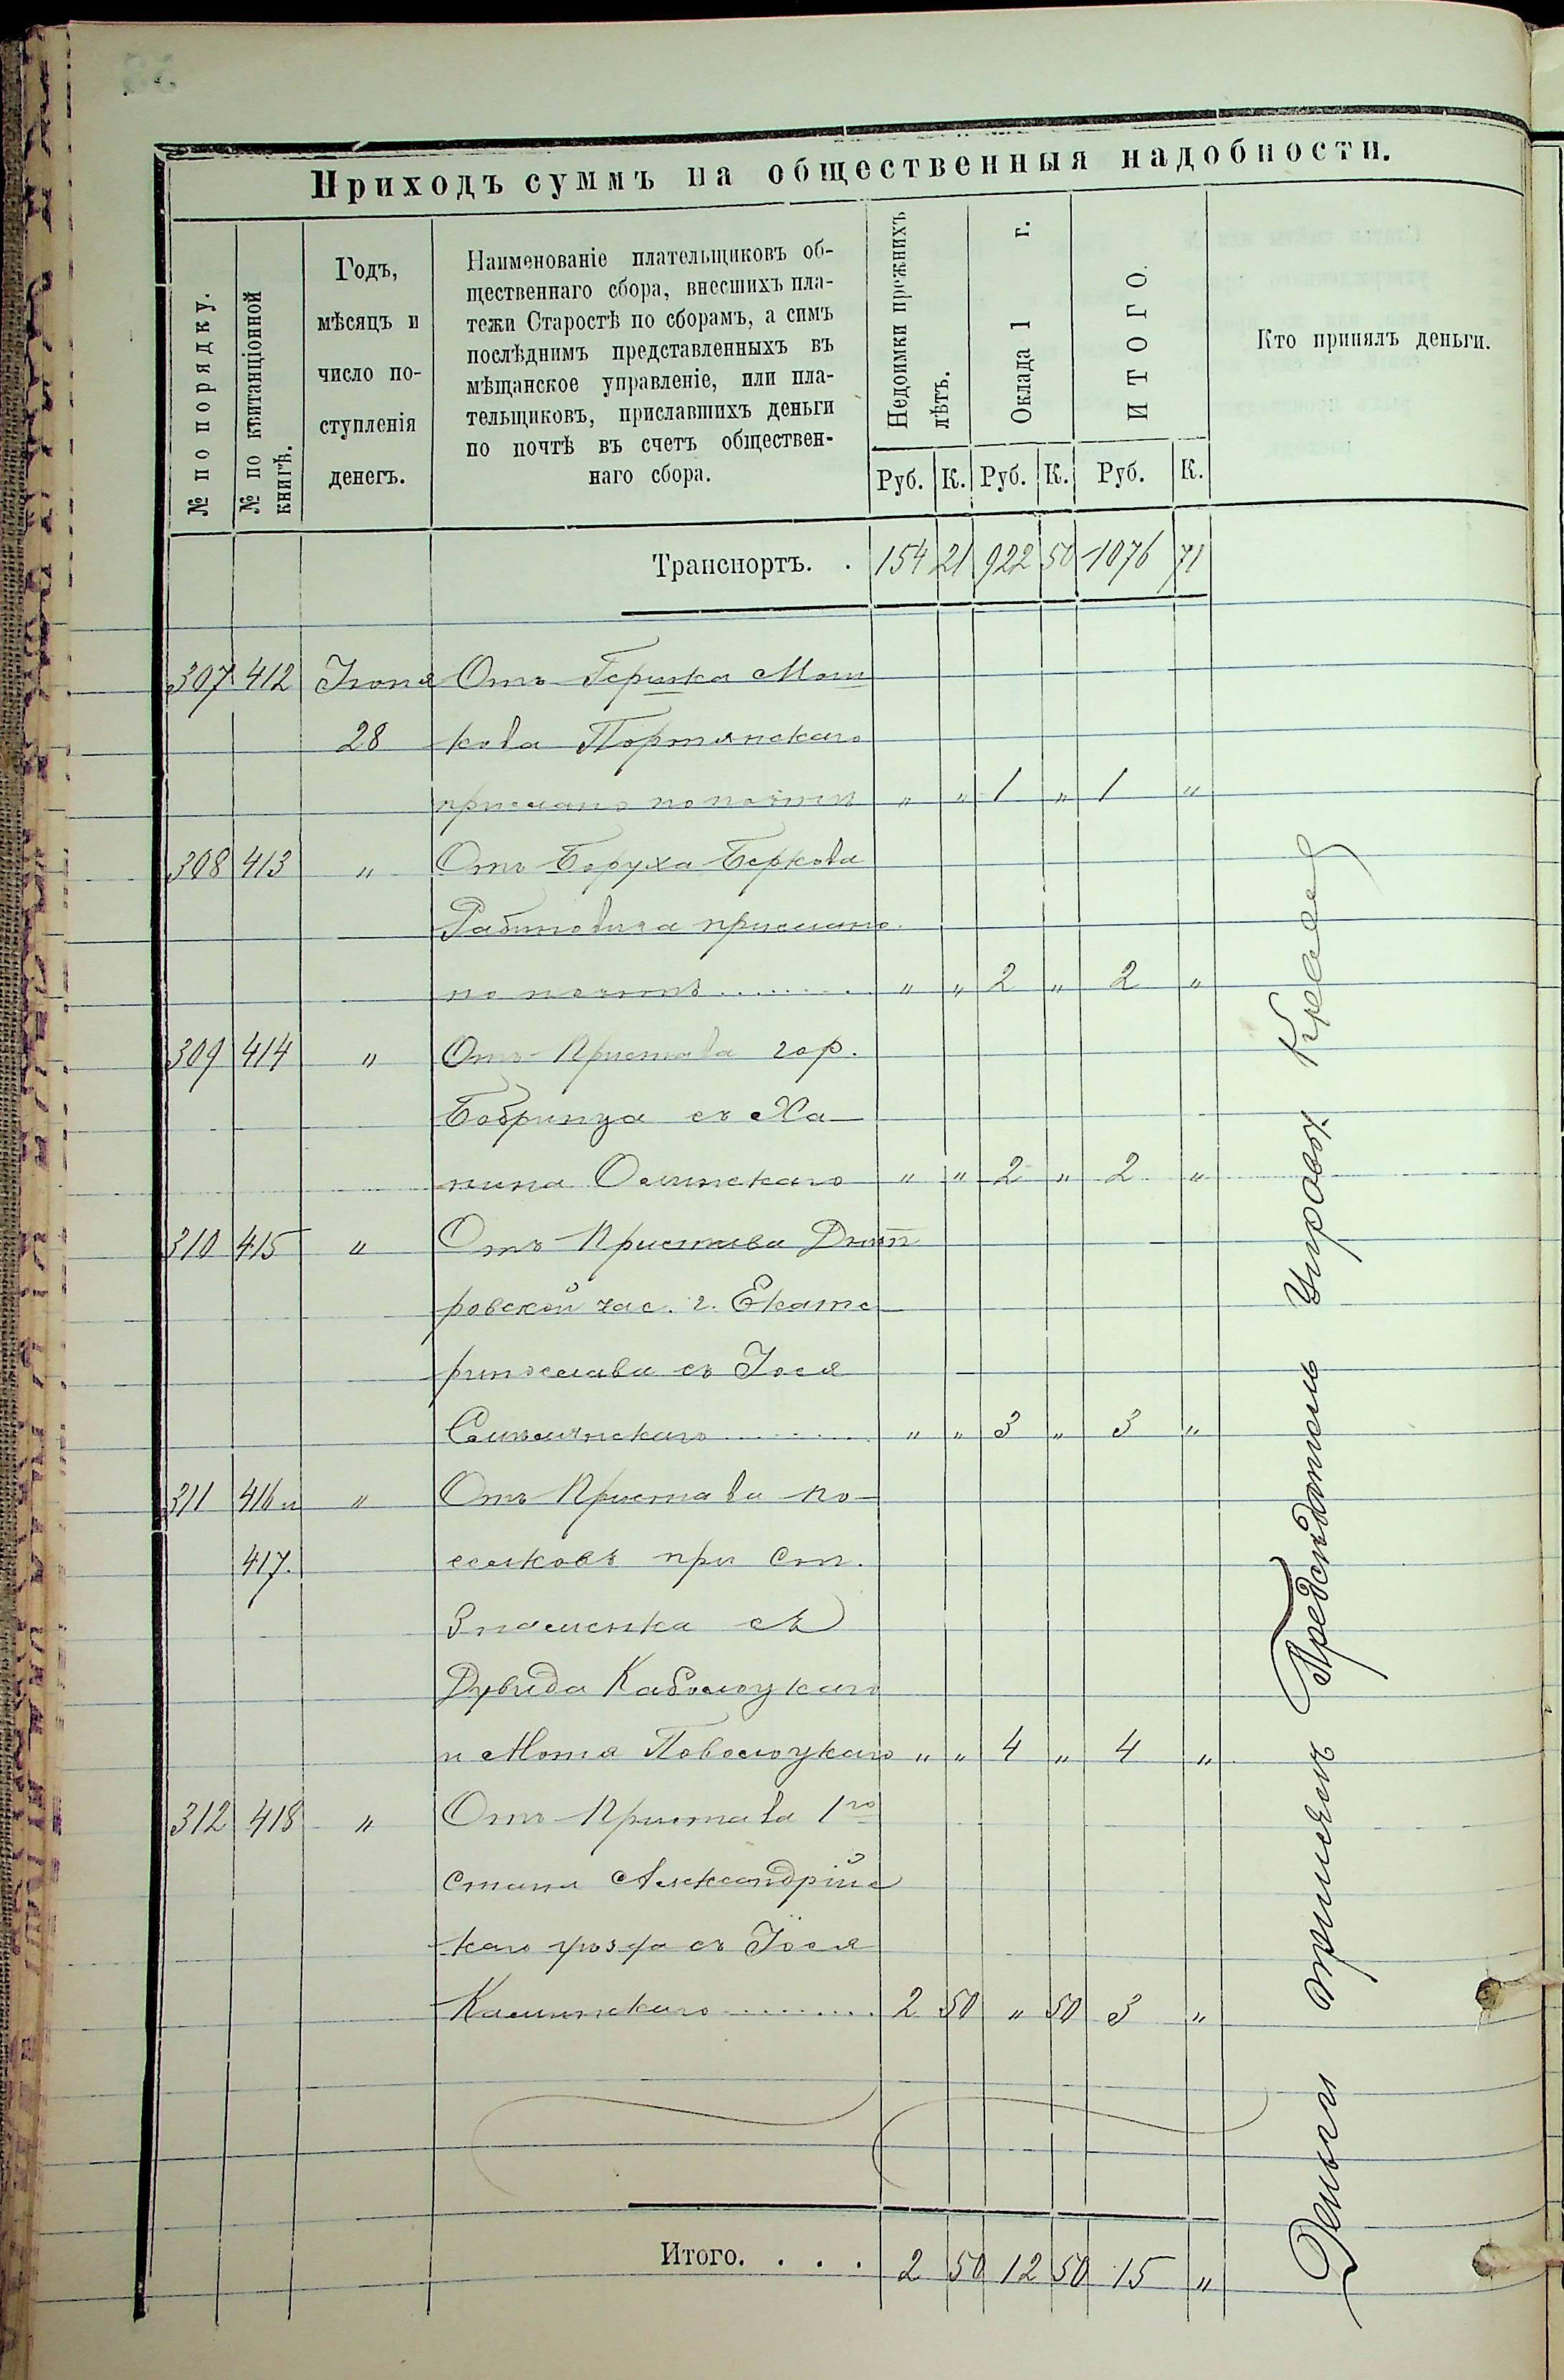 Приходъ суммъ на общественныя надобности.
№ по порядку.
№ по квитанціонной
книгѣ.
Годъ,
мѣсяцъ и
число по-
ступленія
денегъ.
Наименованіе плательщиковъ об-
щественнаго сбора, внесшихъ пла-
тежи Старостѣ по сборамъ, а симъ
послѣднимъ представленныхъ въ
мѣщанское управленіе, или пла-
тельщиковъ, приславшихъ деньги
по почтѣ въ счетъ обществен-
наго сбора.
Недоимки прежнихъ
лѣтъ.
Оклада 1 г.
ИТОГО.
Кто принялъ деньги.
Руб. К. Руб. К. Руб. К.
Транспортъ. . 154 21 922 50 1076 71
307 412 Іюня Отъ Гершка Мош
28 кова Портянскаго
прислано по почтѣ " " 1 " 1 "
308 413 " Отъ Боруха Беркова
Рабиновича прислано
по почтѣ " " 2 " 2 "
309 414 " Отъ Пристава гор.
Бобринца съ Ха-
нина Олинскаго " " 2 " 2 "
310 415 " Отъ Пристава Днѣп
ровской час. г. Екате
ринослава съ Іося
" " 3 " 3 "
311 416 и " Отъ Пристава по-
417. селковъ при ст.
Знаменка съ
Дувида Каболоцкаго
и Мотя Поволоцкаго " " 4 " 4 "
312 418 " Отъ Пристава 1го
стана Александрійс
каго уѣзда съ Іося
Калинскаго 2 50 " 50 3 "
Итого. . . . 2 50 12 50 15 "
Деньги принялъ Предсѣдатель Управы